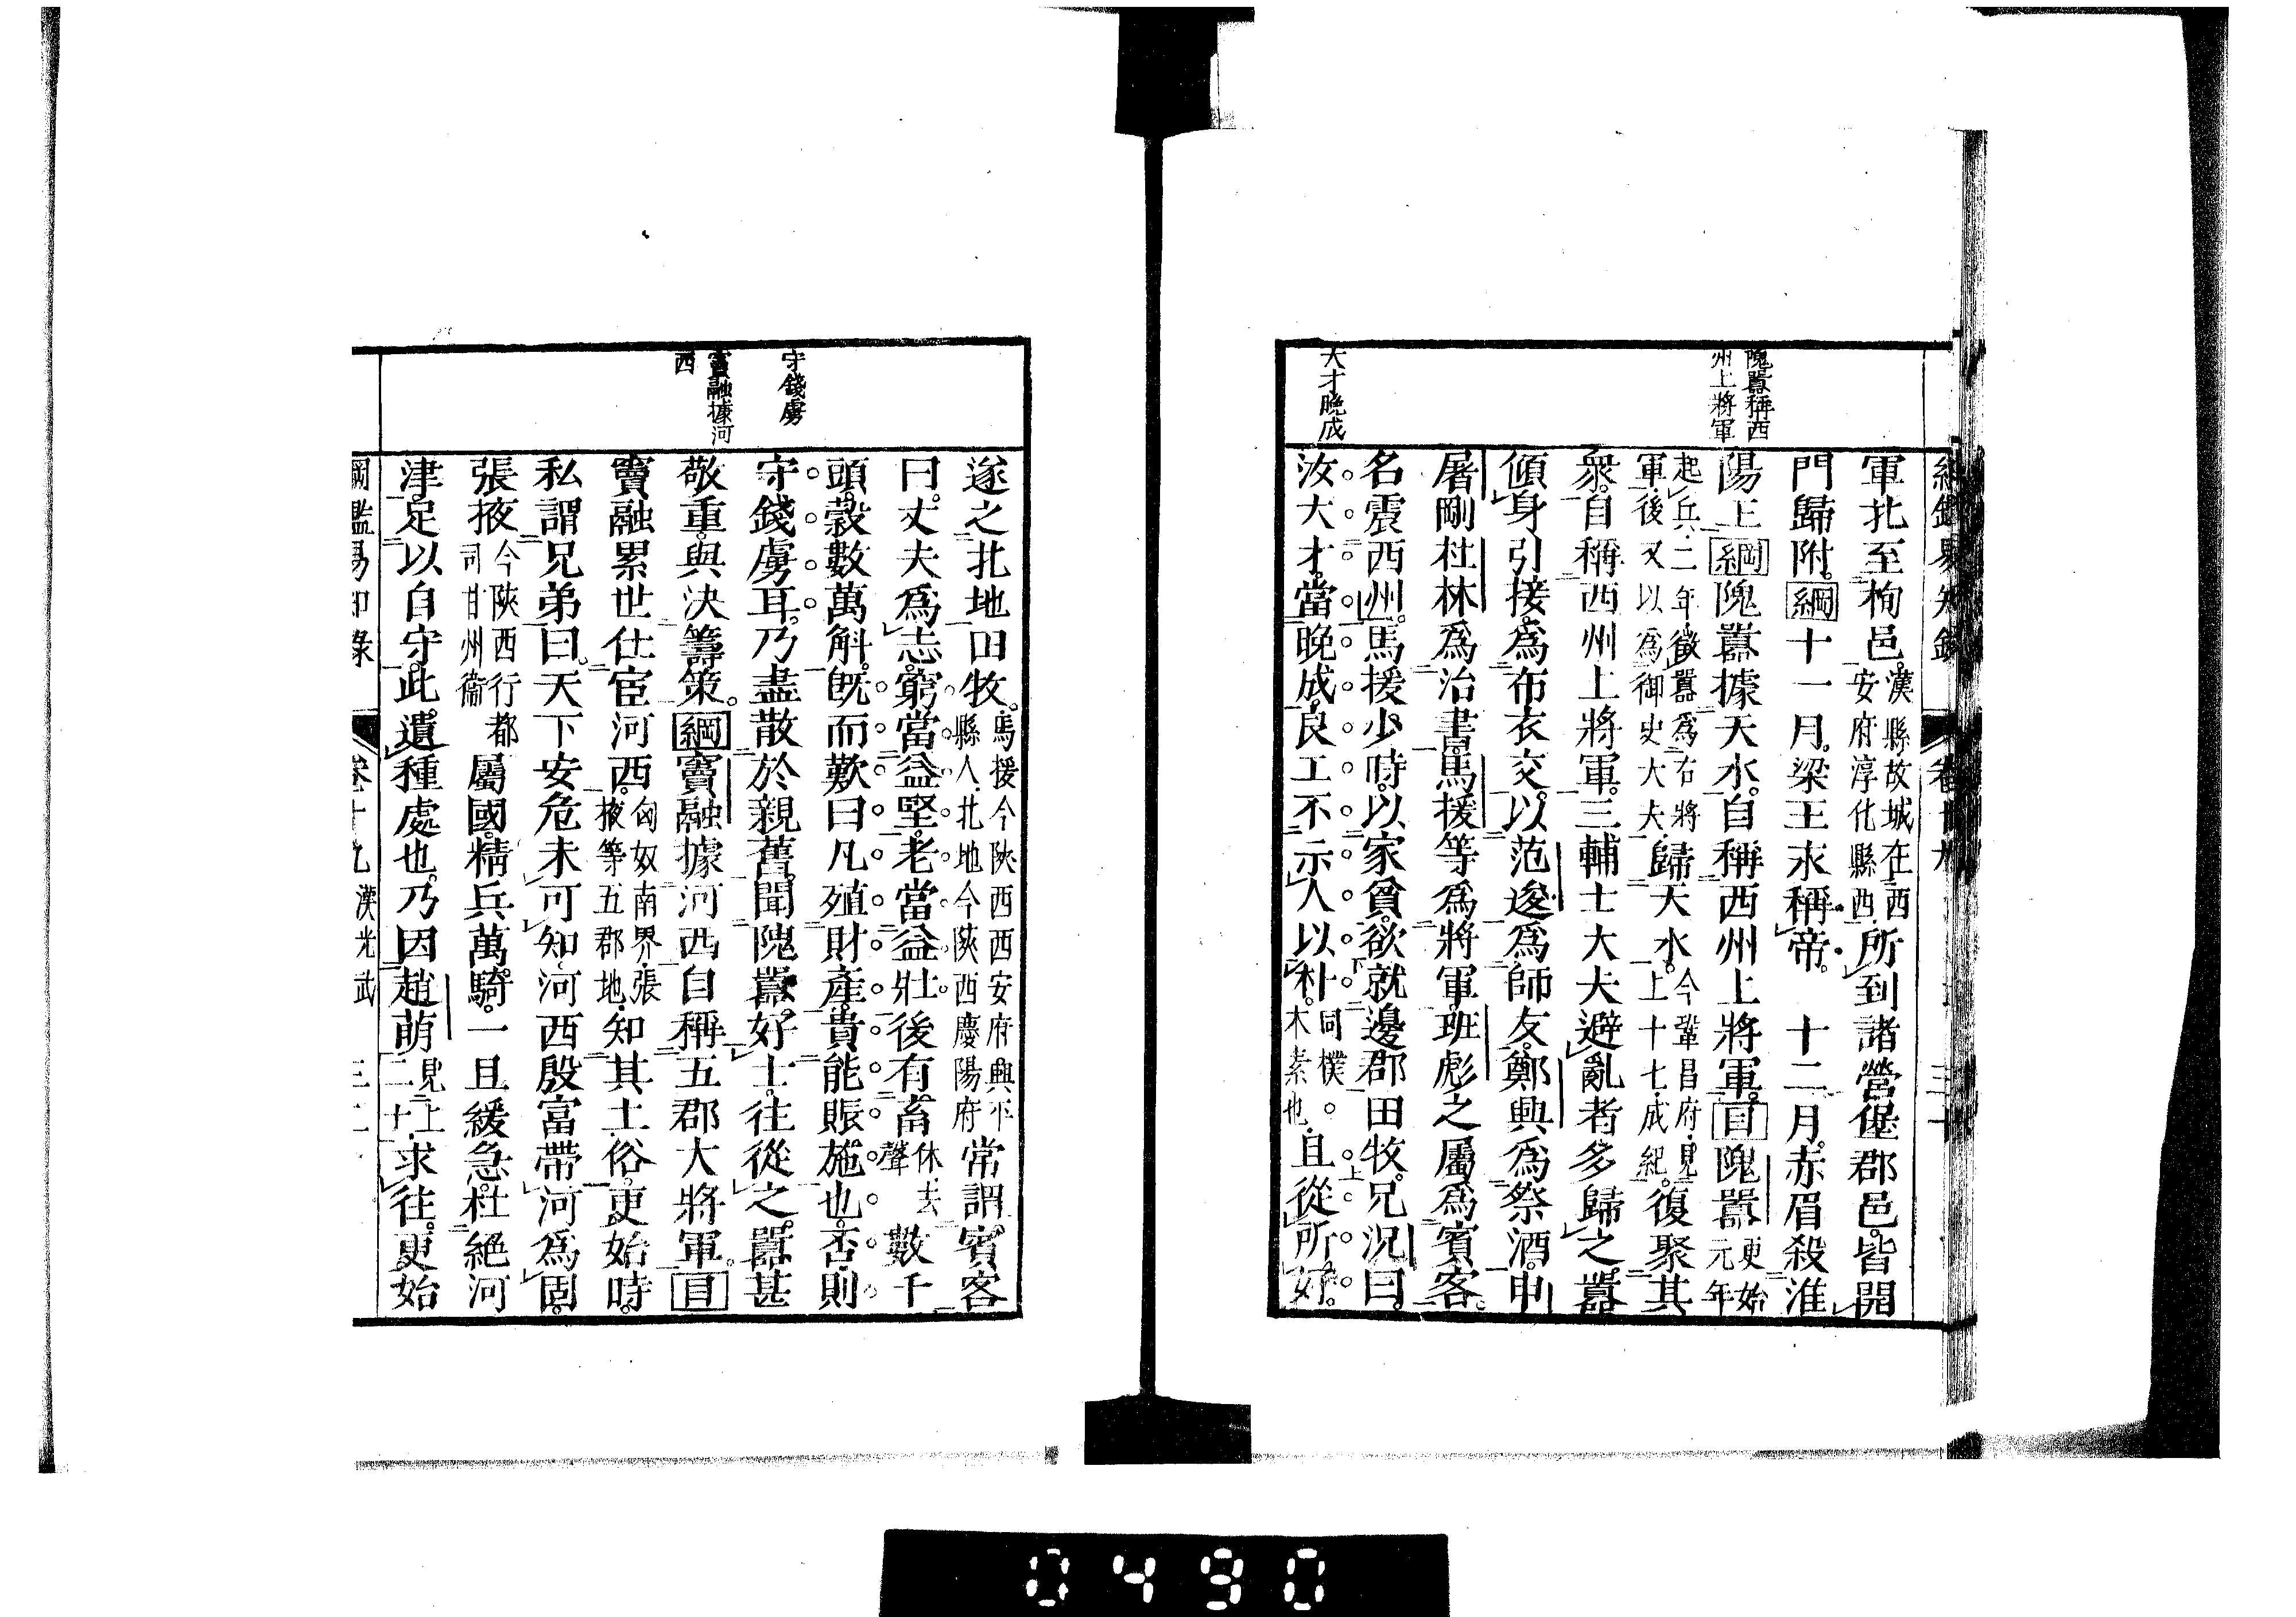 隗囂稱西
州上將軍
大才晚成
軍北至栒邑。漢縣故城在西安府淳化縣西所到諸營堡郡邑。皆開
門歸附。綱十一月。梁王永稱帝。 十二月。赤眉殺淮
陽王綱隗囂據天水。自稱西州上將軍。目隗囂更始元年
起兵、二年、徵囂爲右將軍、後又以爲御史大夫歸天水。今鞏昌府、見上十七、成紀。復聚其
衆。自稱西州上將軍。三輔士大夫避亂者多歸之。囂
傾身引接。爲布衣交。以范逡爲師友。鄭興爲祭酒。申
屠剛杜林爲治書。馬援等爲將軍。班彪之屬爲賓客。
名震西州。馬援少時。以家貧。欲就邊郡田牧。兄況曰。
汝大才。當晚成。良工不示人以朴。同樸。木素也。且從所好。
守錢虜
竇融據河
西
遂之北地田牧。馬援今陝西西安府興平縣人、北地今陝西慶陽府常謂賓客
曰。丈夫爲志。窮當益堅。老當益壯後有畜休去聲數千
頭。穀數萬斛。旣而歎曰凡殖財產。貴能賑施也。否則
守錢虜耳。乃盡散於親舊。聞隗囂好士。往從之。囂甚
敬重。與決籌策。綱竇融據河西自稱五郡大將軍。目
竇融累世仕宦河西。匈奴南界、張掖等五郡地、知其土俗。更始時。
私謂兄弟曰。天下安危未可知河西殷富帶河爲固。
張掖今陝西行都司甘州衞屬國。精兵萬騎。一旦緩急。杜絕河
津。足以自守。此遺種處也。乃因趙萌見上二十、求往。更始
綱鑑易知錄 卷十九漢光武